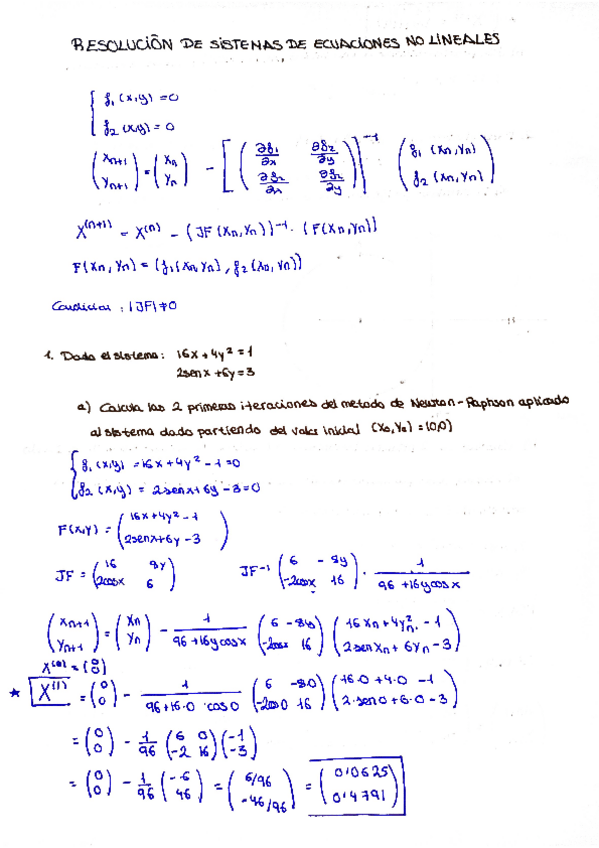 RESOLUCIÓN DE SISTEMAS DE ECUACIONES NO LINEALES
{ f₁ (x,y) = 0
f₂ (x,y) = 0
(xn+1 yn+1) = (xn yn) - [(∂f₁/∂x ∂f2/∂y ∂f2/∂x ∂f2/∂y)]⁻¹ (f₁ (xn,yn) f2 (xn,yn))
X⁽ⁿ⁺¹⁾ = X⁽ⁿ⁾ - (JF (xn,yn))⁻¹ · (F(xn,yn))
F(xn,yn) = (f₁(xn,yn), f2(xn,yn))
Condición : |JF| ≠ 0
1. Dado el sistema: 16x + 4y² = 1
2senx + 6y = 3
a) Calcula las 2 primeras iteraciones del metodo de Newton-Raphson aplicado
al sistema dado partiendo del valor inicial (x0,y0) = (0,0)
{ f₁ (x,y) = 16x + 4y² - 1 = 0
f2 (x,y) = 2senx + 6y - 3 = 0
F(x,y) = (16x + 4y² - 1 2senx + 6y - 3)
JF = (16 8y 2cosx 6) JF⁻¹ (6 -8y -2cosx 16) · 1/(96 + 16ycosx)
(xn+1 yn+1) = (xn yn) - 1/(96 + 16ycosx) (6 -8y -2cosx 16) (16xn + 4yn² - 1 2senxn + 6yn - 3)
X⁽⁰⁾ = (0 0)
* X⁽¹⁾ = (0 0) - 1/(96 + 16·0 · cos0) (6 -8·0 -2cos0 16) (16·0 + 4·0 - 1 2·sen0 + 6·0 - 3)
= (0 0) - 1/96 (6 0 -2 16) (-1 -3)
= (0 0) - 1/96 (-6 46) = (6/96 -46/96) = (0'0625 0'4791)